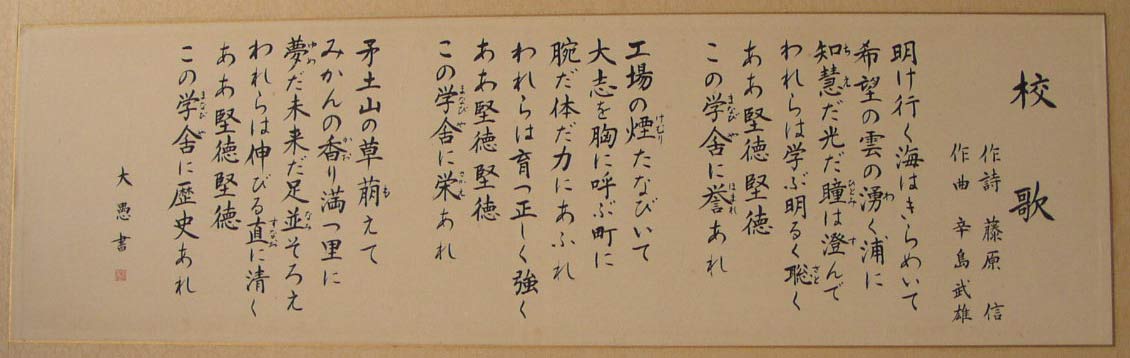 校歌
作詩 藤原 信
作曲 辛島武雄
明け行く海はきらめいて
希望の雲の湧く浦に
知慧だ光だ瞳は澄んで
われらは学ぶ明るく聡く
ああ堅徳堅徳
この学舎に誉あれ
工場の煙たなびいて
大志を胸に呼ぶ町に
腕だ体だ力にあふれ
われらは育つ正しく強く
ああ堅徳堅徳
この学舎に栄あれ
矛土山の草萠えて
みかんの香り満つ里に
夢だ未来だ足並そろえ
われらは伸びる直に清く
ああ堅徳堅徳
この学舎に歴史あれ
大愚書